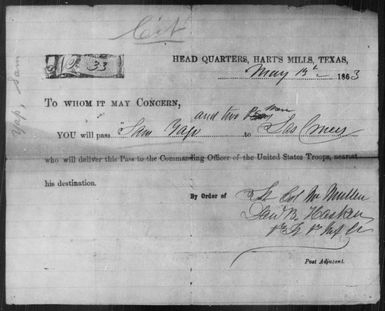 Cit
No 33
HEAD QUARTERS, HART'S MILLS, TEXAS,
May 13th 1863
TO WHOM IT MAY CONCERN,
and two men
YOU will pass Sam to Las Cruces
who will deliver this Pass to the Commanding Officer of the United States Troops, nearest
his destination.
By Order of Lt Col McMullen
B. Haskell
1st Lt 1st Inf Cal
Post Adjutant.